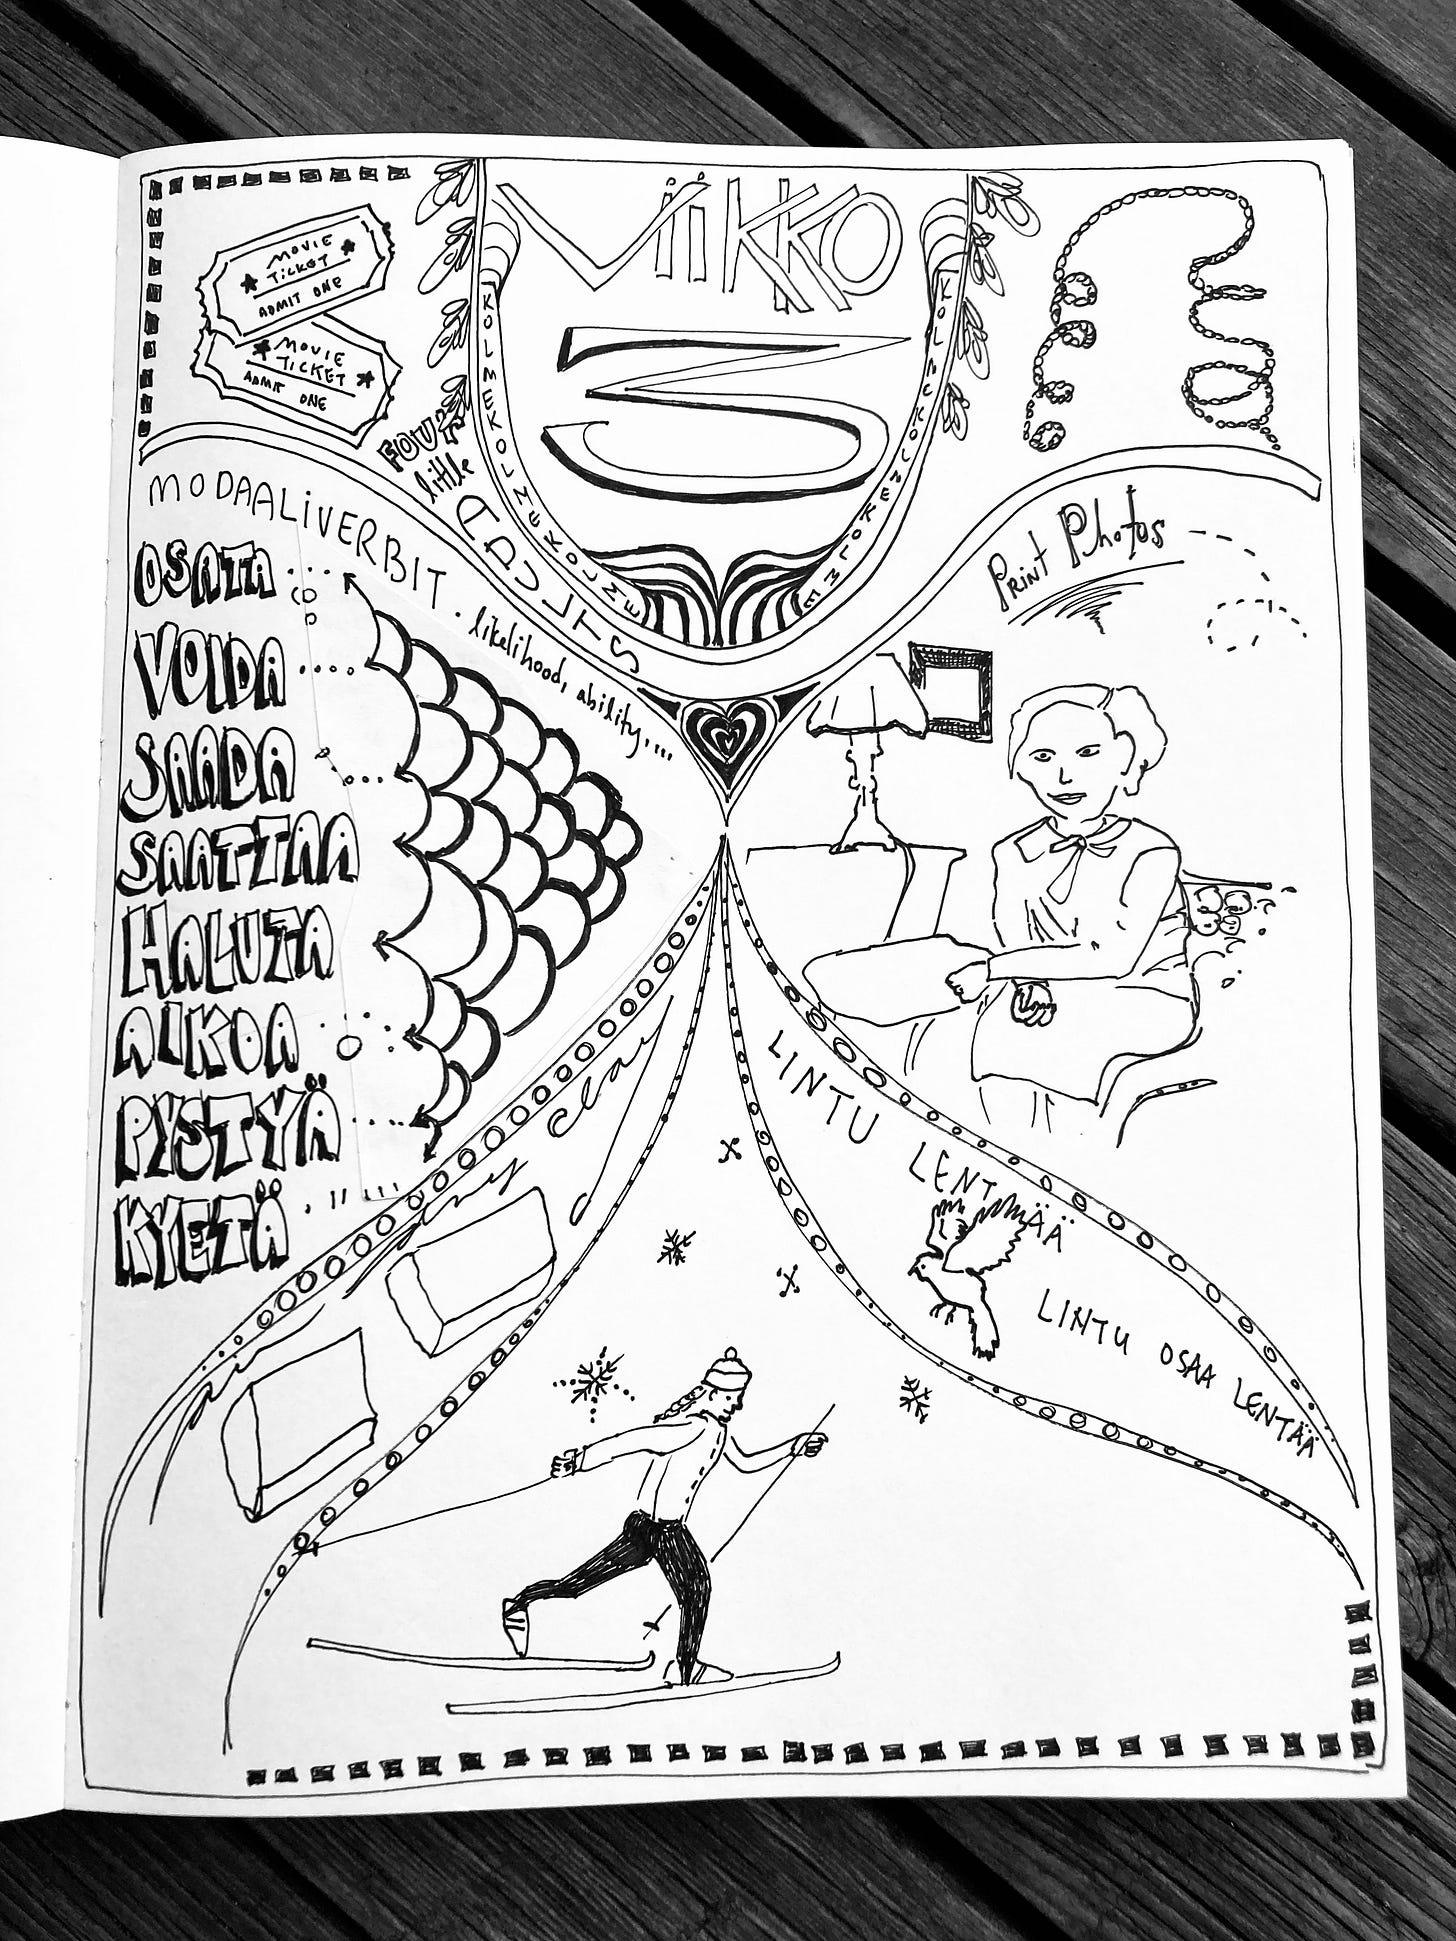 ViiKKO
3
MOViE
TiCKET
ADMIT ONE
MOViE
TiCKET
ADMIT ONE
KOLMEKOLMEKOLMEKOLME
FOUR
little
ADULTS
MODAALiVERBIT. likelihood, ability,...
OSATA
VOIDA
SAADA
SAATTAA
HALUTA
AIKOA
PYSTYÄ
KYETÄ
PRiNT Photos
clay
LINTU LENTÄÄ
LINTU OSAA LENTÄÄ